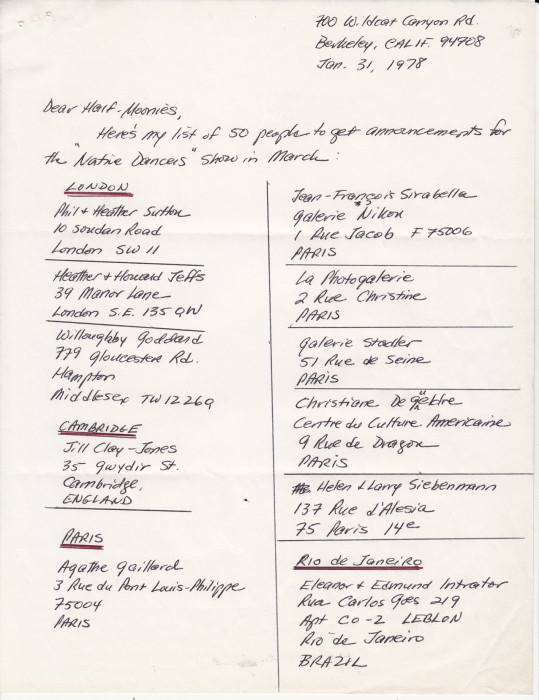 700 Wildcat Canyon Rd.
Berkeley, CALIF. 94708
Jan. 31, 1978
Dear Half-Moonies,
Here's my list of 50 people to get announcements for
the "Native Dancers" show in March:
LONDON
Phil & Heather Sutton
10 Soudan Road
London SW 11
Heather & Howard Jeffs
39 Manor Lane
London S.E. 135 QW
Willoughby Goddard
779 Gloucester Rd.
Hampton
Middlesex TW12 2GQ
CAMBRIDGE
Jill Clay-Jones
35 Gwydir St.
Cambridge,
ENGLAND
PARIS
Agathe Gaillard
3 Rue du Pont Louis-Philippe
75004
PARIS
Jean-François Sirabella
Galerie Nikon
1 Rue Jacob F 75006
PARIS
La Photogalerie
2 Rue Christine
PARIS
Galerie Stadler
51 Rue de Seine
PARIS
Christiane De
Centre du Culture Americaine
9 Rue de Dragon
PARIS
Helen & Larry Siebenmann
137 Rue d'Alesia
75 Paris 14e
RIO de JANEIRO
Eleanor & Edmund Intrator
Rua Carlos Goes 219
Apt CO-2 LEBLON
Rio de Janeiro
BRAZIL